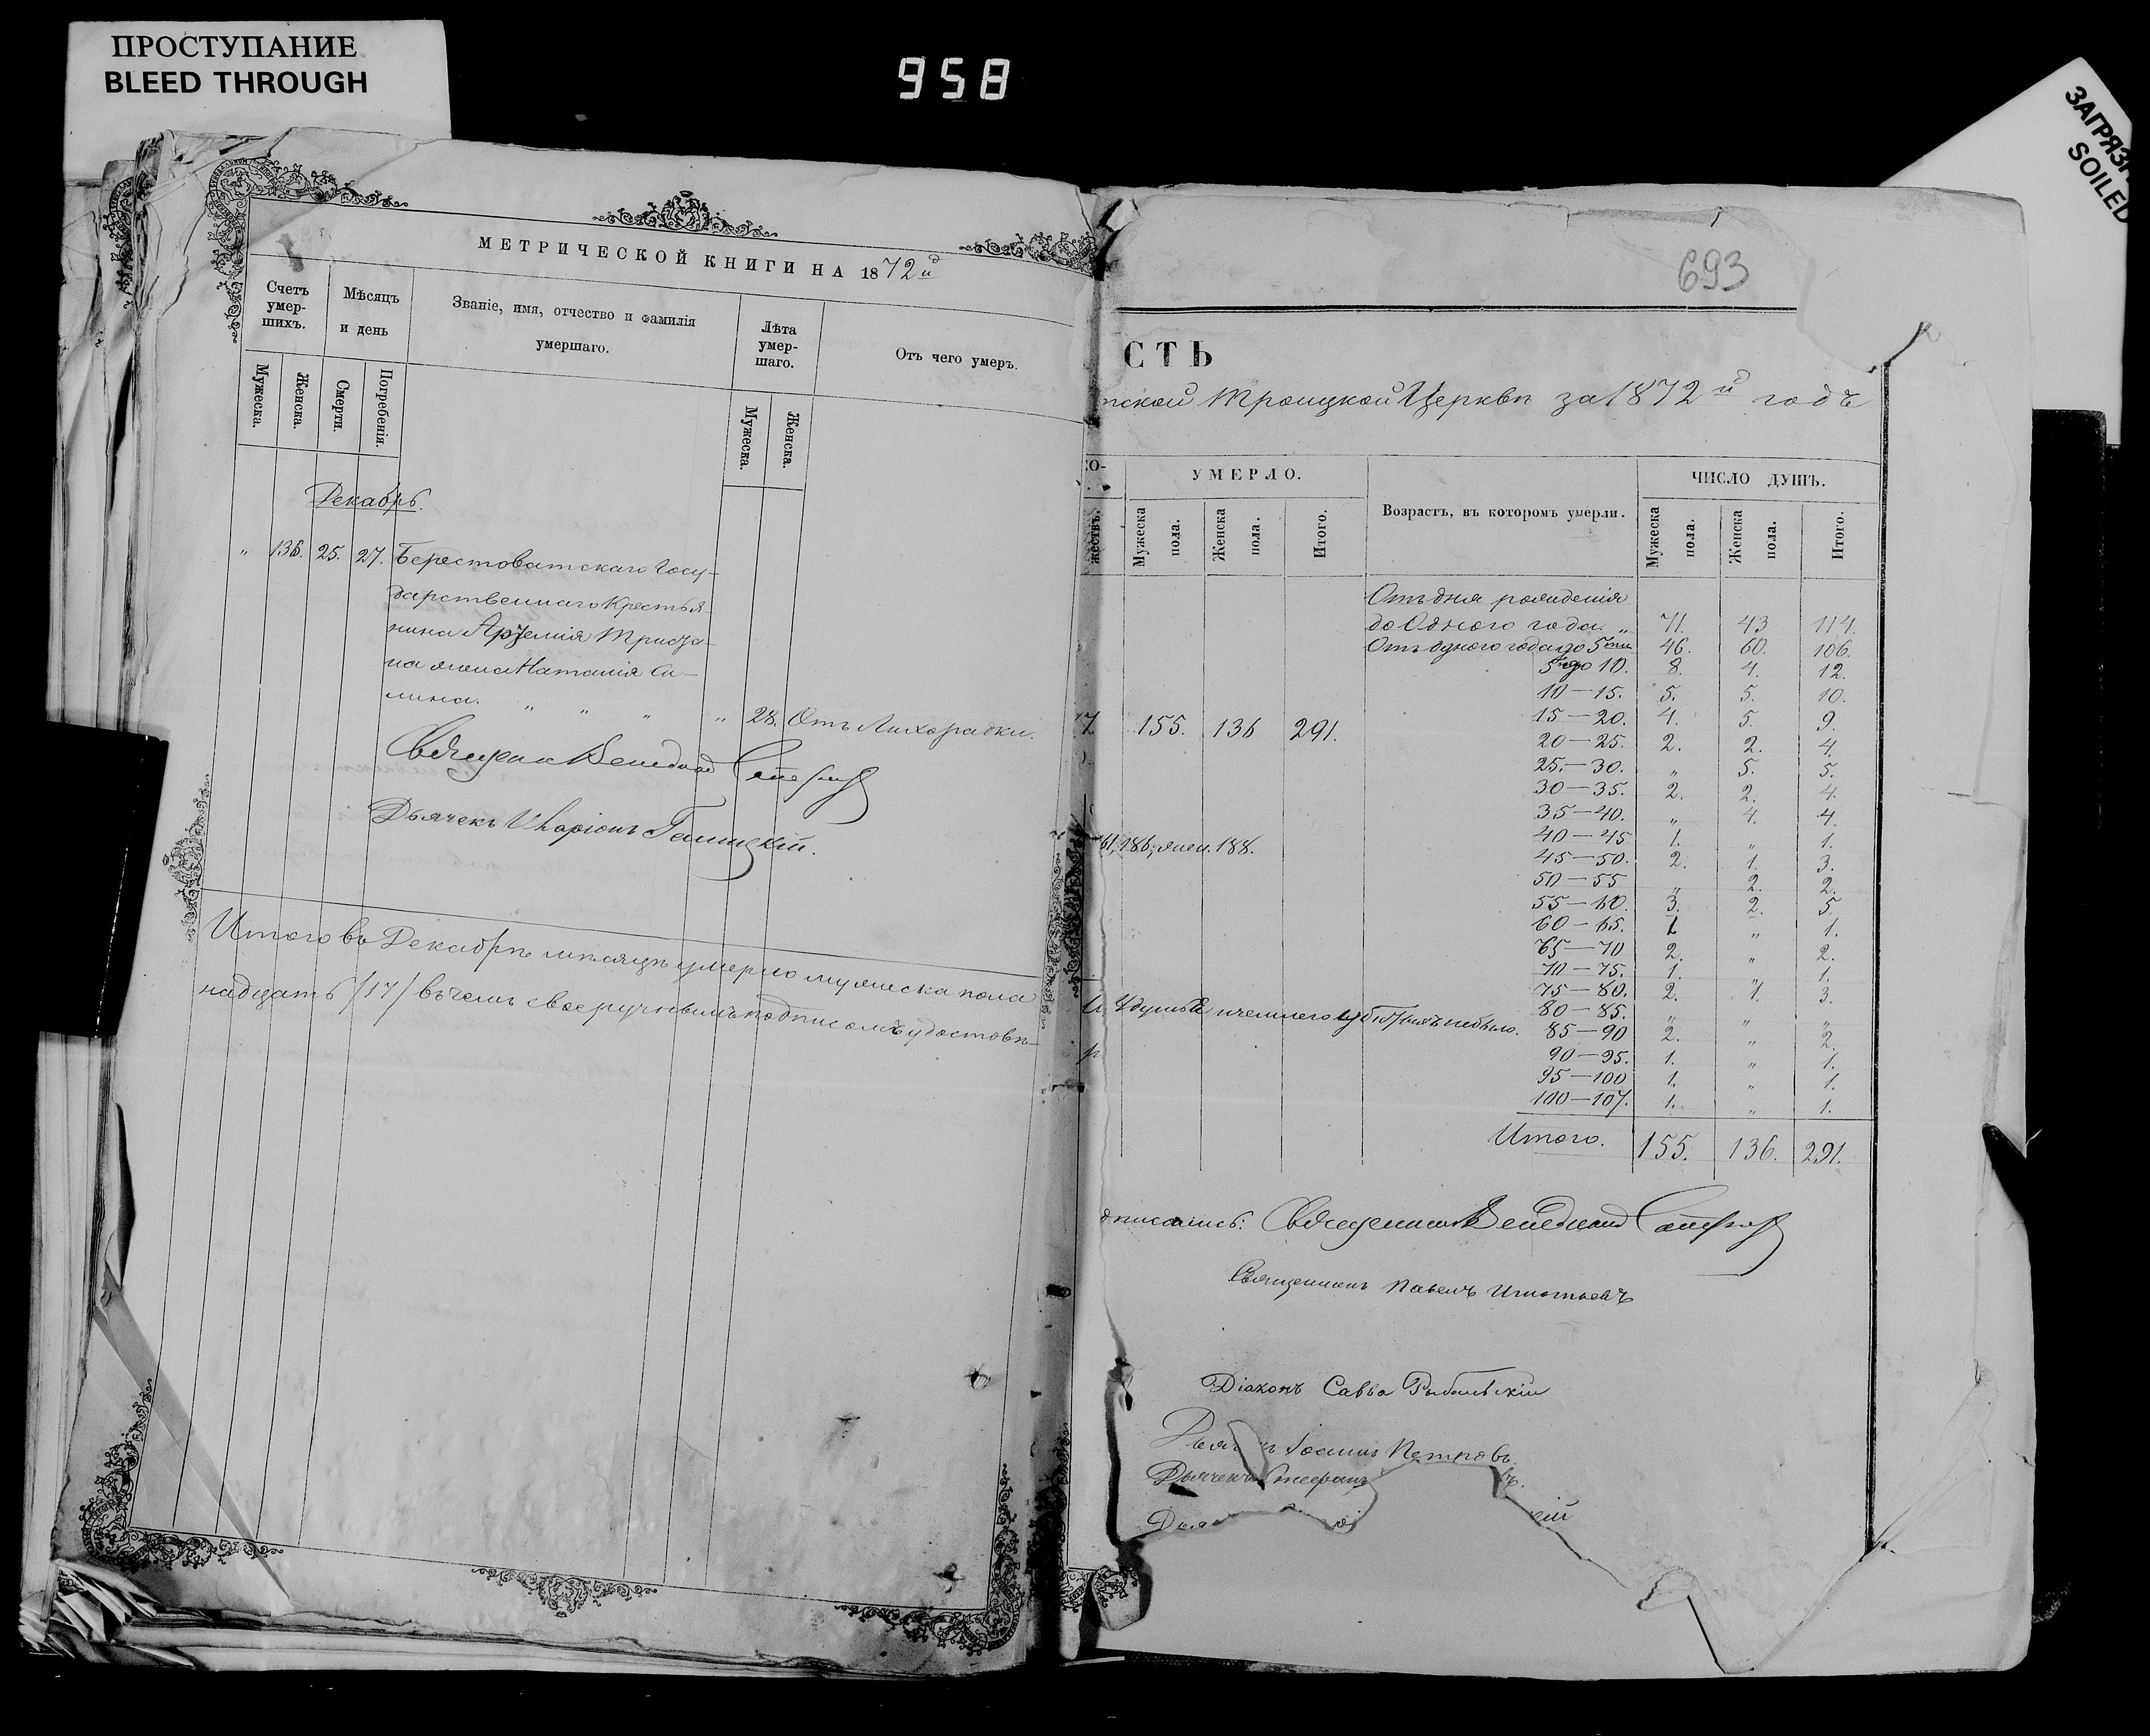 ПРОСТУПАНИЕ
BLEED THROUGH
958
ЗАГРЯЗ
SOILED
МЕТРИЧЕСКОЙ КНИГИ НА 1872й
Счетъ умер-шихъ.
Мѣсяцъ и день
Званіе, имя, отчество и фамилія умершаго.
Лѣта умер-шаго.
Отъ чего умеръ.
Мужеска.
Женска.
Смерти.
Погребенія.
Мужеска.
Женска.
Декабрь.
„ 136. 25. 27. Берестоватскаго Госу-
дарственнаго Крестья
нина Артемія
на жена Наталія Си-
лина. „ „ „ „ 28. Отъ Лихорадки.
Священник Венедикт
Дьячекъ Иларіонъ
Итого въ Декабрѣ мѣсяцѣ умерло мужеска пола
надцать /17/ въ чемъ своеручнымъ подписомъ удостовѣ-
693
СТЬ
ской Троицкой Церкви за 1872й годъ
УМЕРЛО.
Возрастъ, въ которомъ умерли.
ЧИСЛО ДУШЪ.
Мужеска пола.
Женска пола.
Итого.
Мужеска пола.
Женска пола.
Итого.
Отъ дня рожденія
до Одного года. „ 71. 43 114.
Отъ одного года до 5 46. 60. 106.
5 до 10. 8. 4. 12.
10—15. 5. 5. 10.
155. 136 291.
15—20. 4. 5. 9.
20—25. 2. 2. 4.
25.—30. „ 5. 5.
30—35. 2. 2. 4.
35—40. „ 4. 4.
61, 186, жен. 188.
40—45 1. „ 1.
45—50. 2. 1. 3.
50—55 „ 2. 2.
55—60. 3. 2. 5
60—65. 1 „ 1.
65—70 2. „ 2.
70—75. 1. „ 1.
75—80. 2. 1. 3.
небыло.
80—85. „ „ „
85—90 2. „ 2.
90—95. 1. „ 1.
95—100 1. „ 1.
100—107. 1. „ 1.
Итого. 155. 136. 291.
дписались: Священник Венедикт
Священникъ Павелъ Игнатьевъ
Діаконъ Савва Рыбальскій
Іоаннъ Петровъ.
Дьячекъ Стефанъ въ.
ій